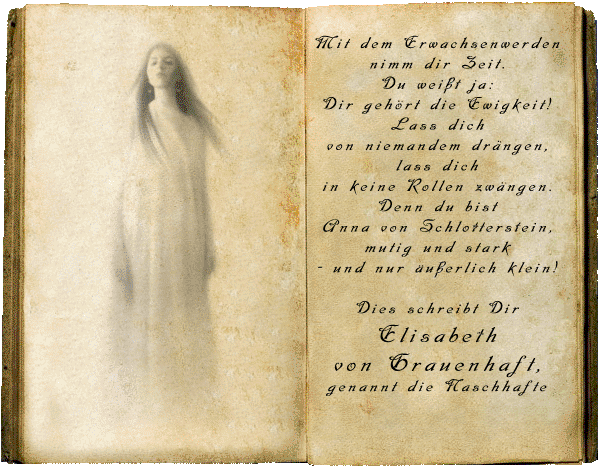 Mit dem Erwachsenwerden
nimm dir Zeit.
Du weißt ja:
Dir gehört die Ewigkeit!
Lass dich
von niemandem drängen,
lass dich
in keine Rollen zwängen.
Denn du bist
Anna von Schlotterstein,
mutig und stark
- und nur äußerlich klein!
Dies schreibt Dir
Elisabeth
von Grauenhaft,
genannt die Naschhafte